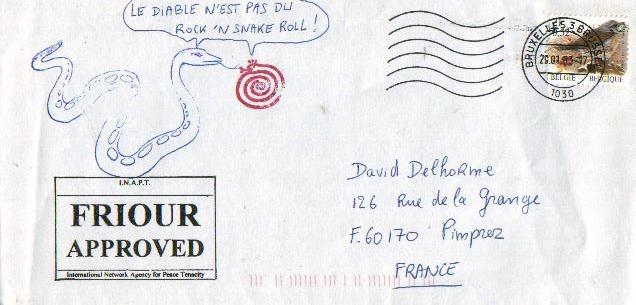 LE DIABLE N'EST PAS DU
ROCK 'N SNAKE ROLL !
BRUXELLES 3 BRUSSEL
BELGIE BELGIQUE
1030
David Delhorme
126 Rue de la Grange
F. 60170 Pimprez
FRANCE
I.N.A.P.T.
FRIOUR
APPROVED
International Network Agency for Peace Tenacity